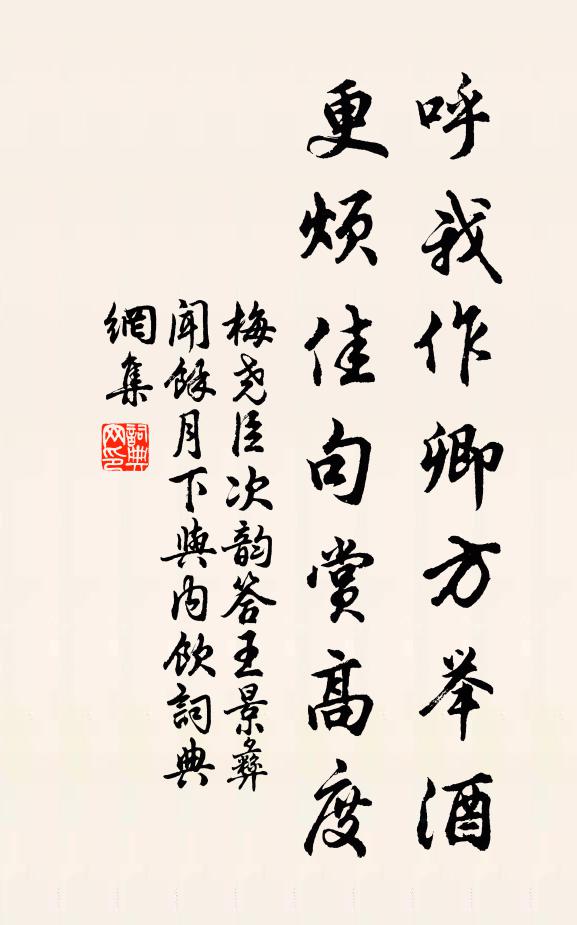 呼我作卿方举酒
更烦佳句赏高度
梅尧臣次韵答王景彝
闻馀月下與内饮詞典
網集
詞典网印